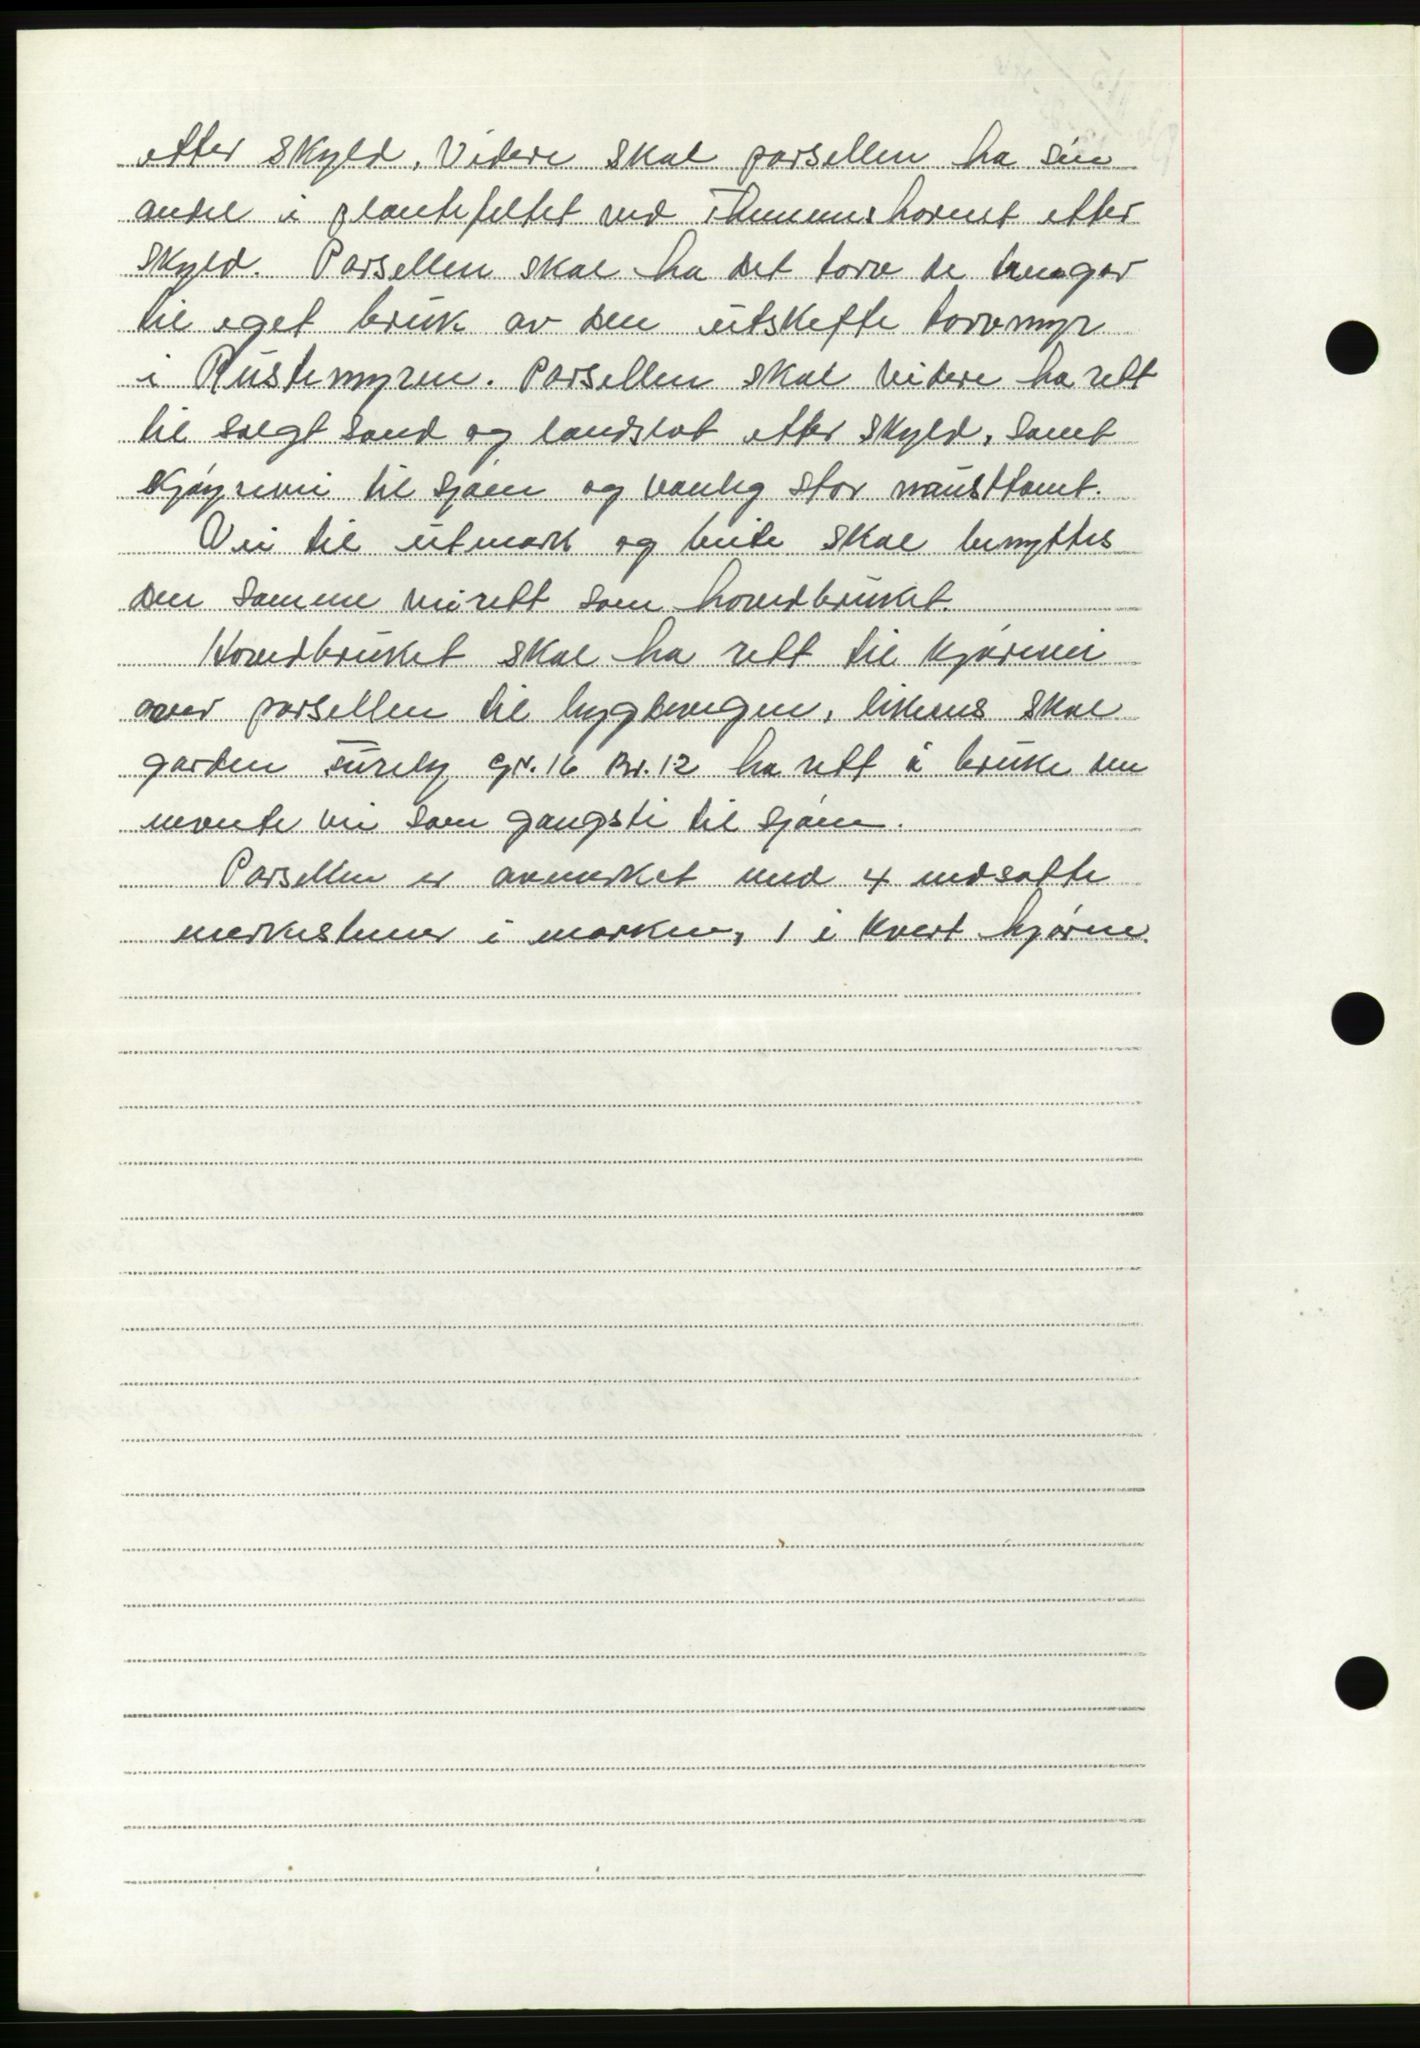 etter skyld. Videre skal parsellen ha sin
andel i plantefeltet ved etter
skyld. Parsellen skal ha det torv de trenger
til eget bruk av den utskefte torvmyr
i Rustemyren. Parsellen skal videre ha rett
til solgt sand og landslot etter skyld, samt
Kjøyrevei til sjøen og vanlig stor nausttomt.
Vei til utmark og beite skal benyttes
den samme veirett som hovedbruket.
Hovedbruket skal ha rett til kjørevei
over parsellen til bygdevegen, likeens skal
garden Gr. 16 Br. 12 ha rett å bruke den
nevnte vei som gangsti til sjøen.
Parsellen er avmerket med 4 nedsatte
merkestener i marken, 1 i kvert hjørne.